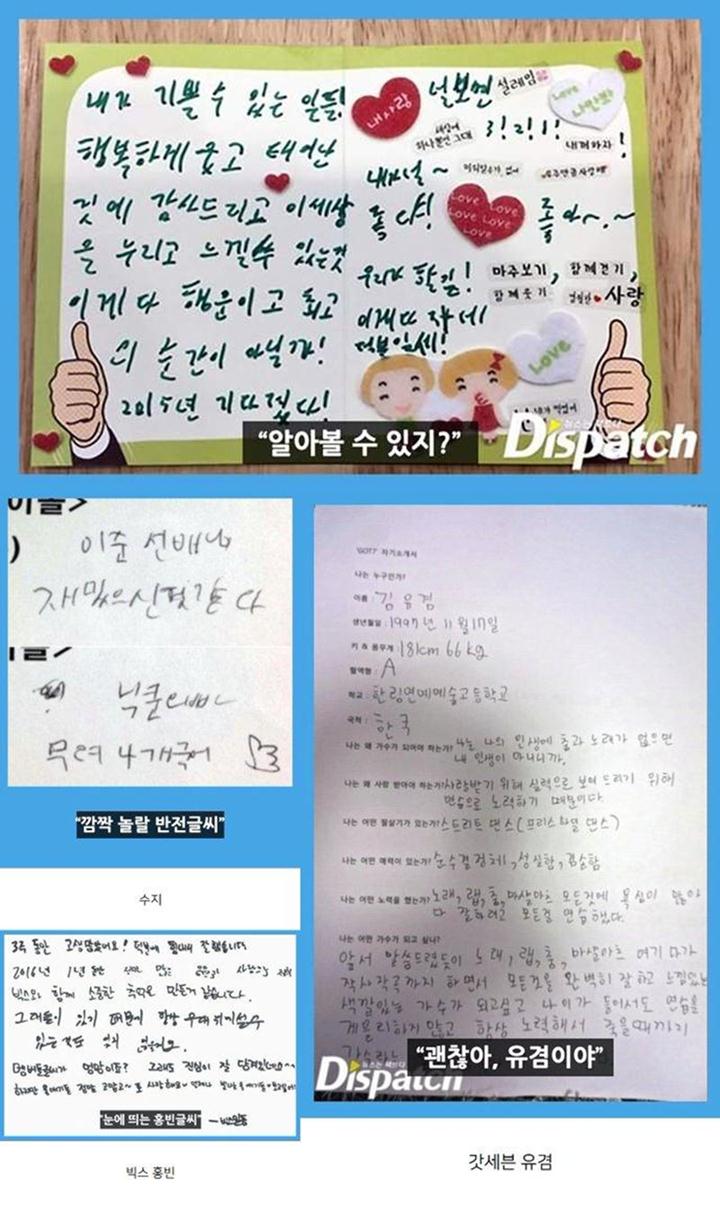 내가 기쁠 수 있는 일들!
행복하게 웃고 태어난
것에 감사드리고 이세상
을 누리고 느낄수 있는것
이게 다 행운이고 최고
의 순간이 아닐까!
2015년 기다렸다!
내사랑
널보면 설레임
Love
나만봐
세상에
하나뿐인 그대
3!2!1!
내꺼하자!
내가널~
좋다!
Love Love
Love Love
Love
좋아~.~
우리가 할일!
마주보기, 함께걷기,
함께웃기
사랑
이게다 자네
덕분일세!
Love
"알아볼 수 있지?"
Dispatch
이돌>
)
이준 선배님
재밌으신것같다
이돌>
닉쿤선배님
무려 4개국어
"깜짝 놀랄 반전글씨"
수지
3주 동안 고생많았어요! 덕분에 활동 잘했습니다
2016년 1년 동안
빅스와 함께 소중한 추억으로 만든거 같습니다.
그대들이 있기 때문에 항상 우리 위치설수
있는
"눈에 띄는 홍빈글씨"
빅스 홍빈
'GOT7' 자기소개서
나는 누구인가?
이름 : 김유겸
생년월일 : 1997년 11월 17일
키 & 몸무게 : 181cm 66kg
혈액형 : A
학교 : 한림연예예술고등학교
국적 : 한국
나는 왜 가수가 되어야 하는가? 나는 나의 인생에 춤과 노래가 없으면
내 인생이 아니니까.
나는 왜 사랑 받아야 하는가? 사랑받기 위해 실력으로 보여 드리기 위해
연습으로 노력하기 때문이다.
나는 어떤 필살기가 있는가? 스트리트 댄스(프리스타일 댄스)
나는 어떤 매력이 있는가? 순수결정체, 성실함, 꼼꼼함
나는 어떤 노력을 했는가? 노래, 랩, 춤, 마샬아츠 모든것에 욕심이 많아
다 잘하려고 모든걸 연습했다.
나는 어떤 가수가 되고 싶나?
앞서 말씀드렸듯이 노래, 랩, 춤, 마샬아츠 여기다가
작사작곡까지 하면서 모든것을 완벽히 잘하고 느낌있는
색깔있는 가수가 되고싶고 나이가 들어서도 연습을
게을리하지않고 항상 노력해서 죽을때까지
"괜찮아, 유겸이야"
Dispatch
갓세븐 유겸